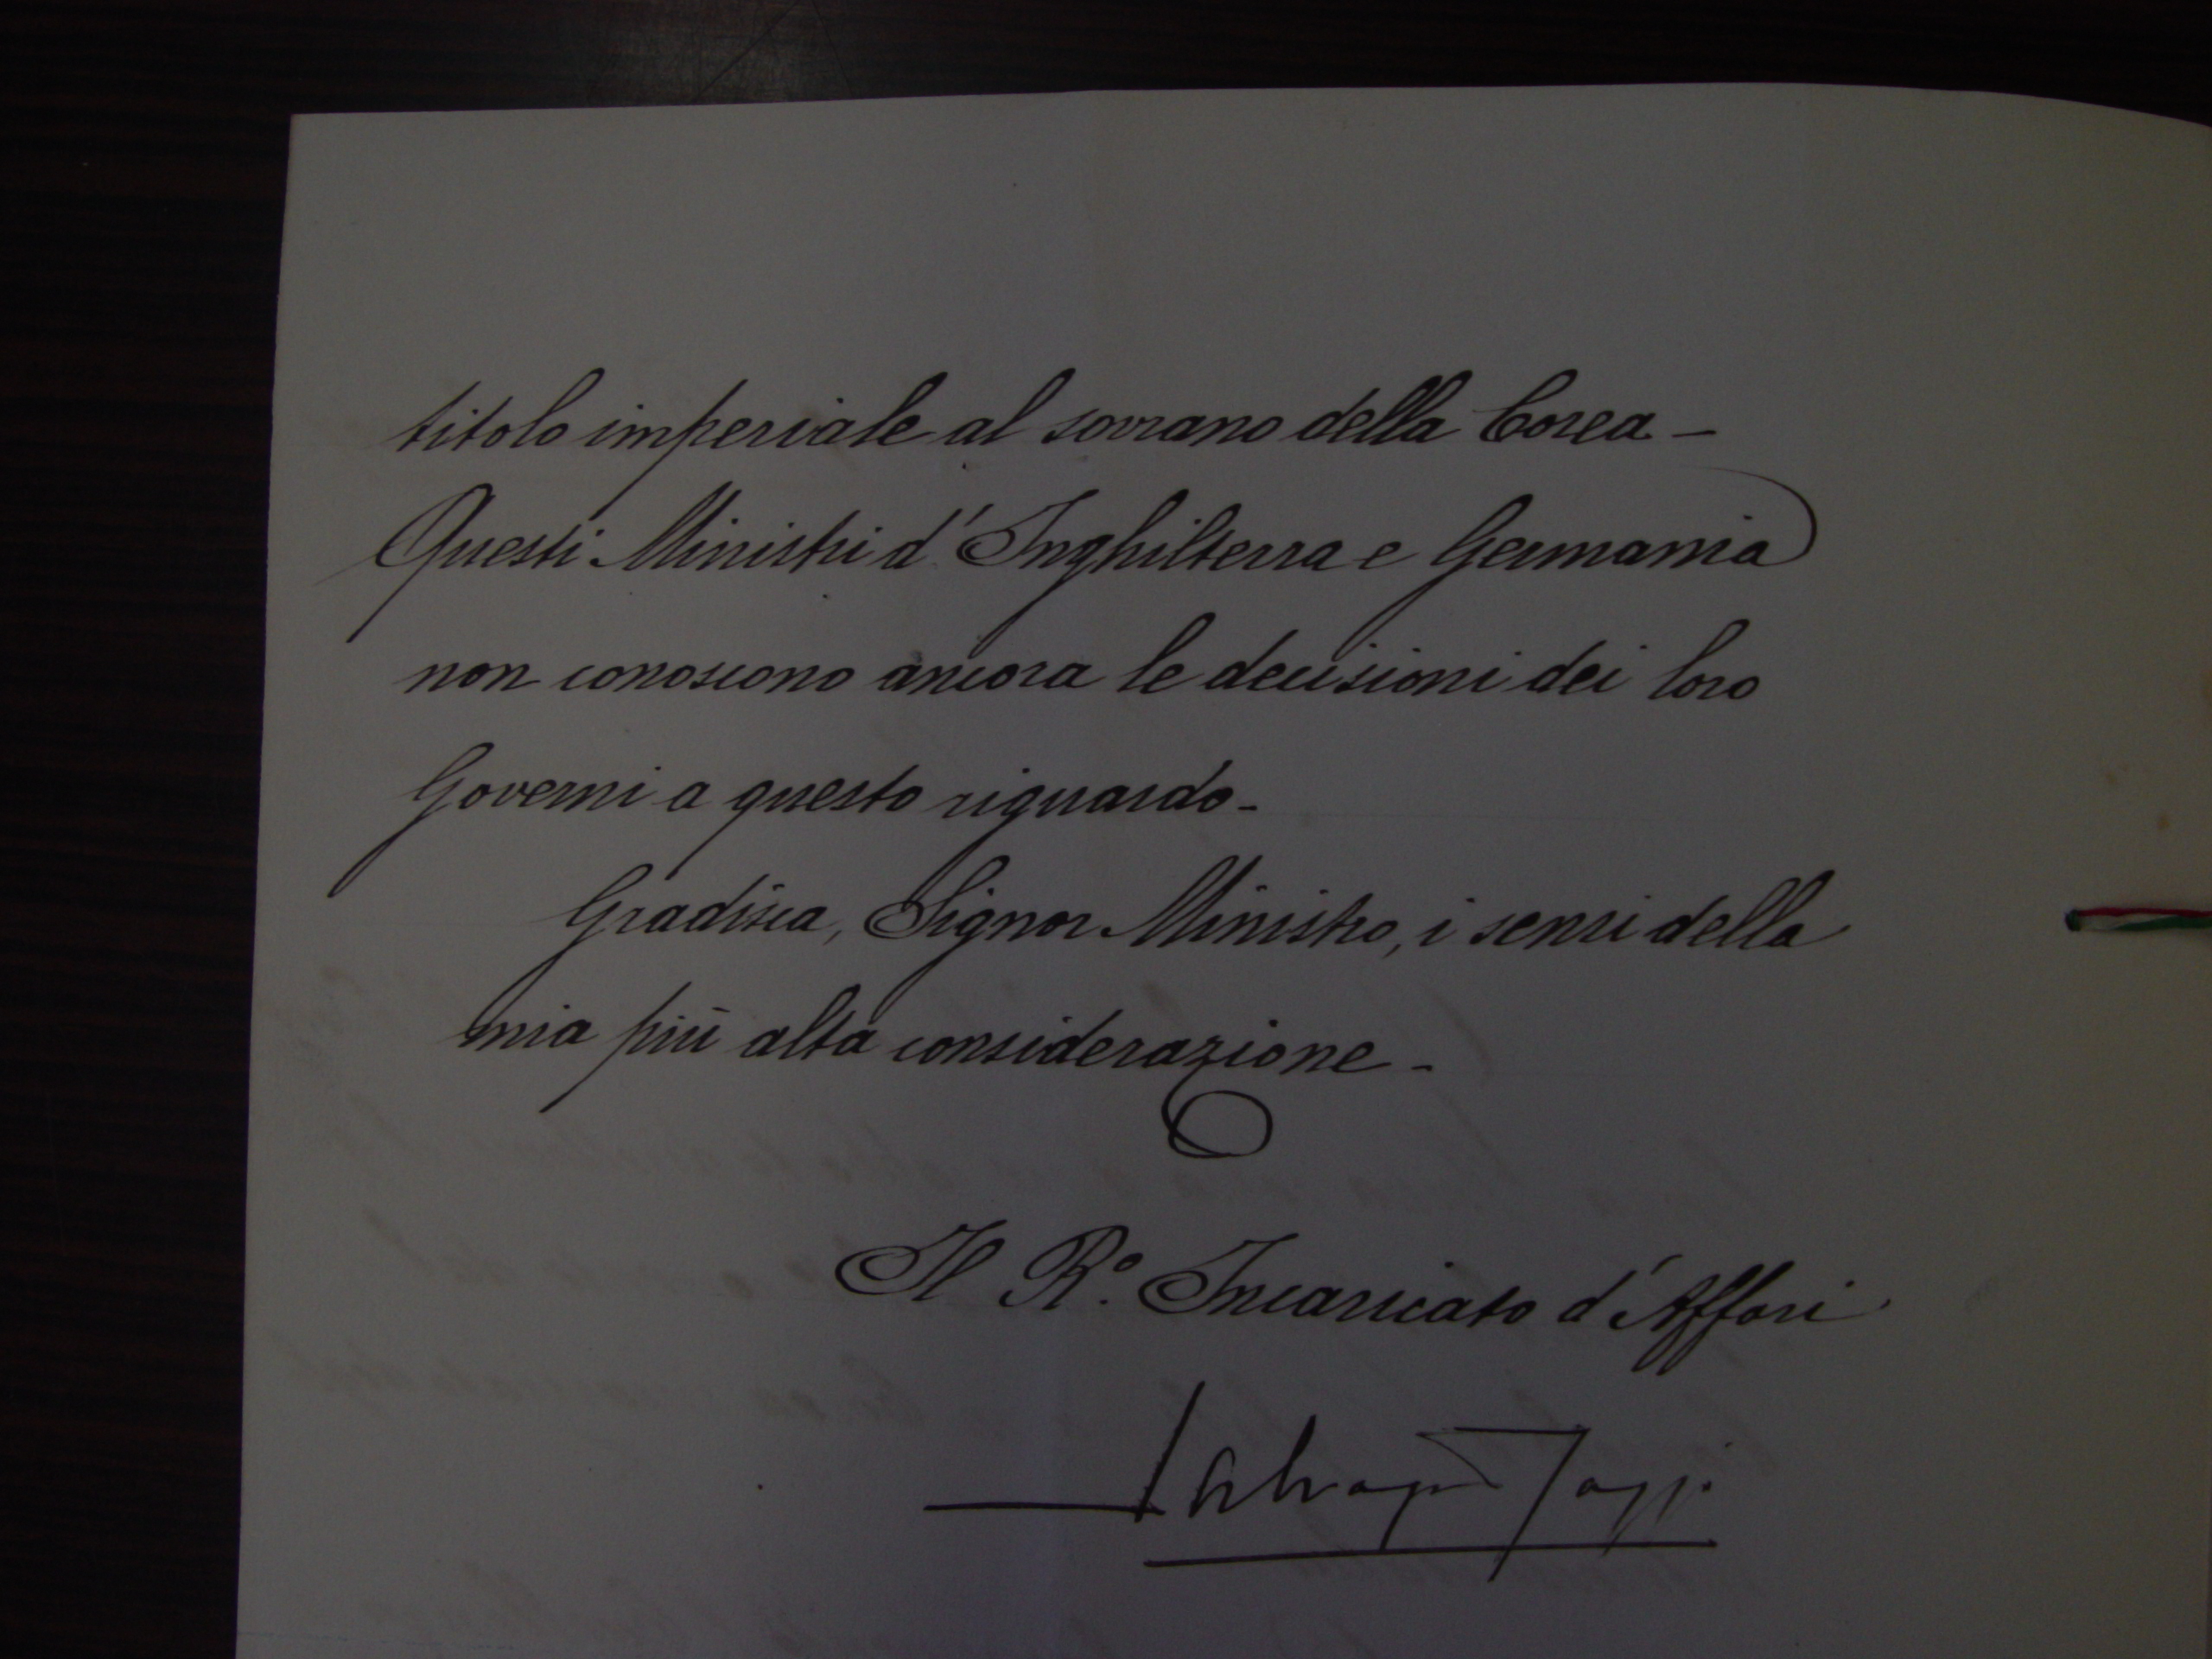 titolo imperiale al sovrano della Corea –
Questi Ministri d'Inghilterra e Germania
non conoscono ancora le decisioni dei loro
Governi a questo riguardo –
Gradisca, Signor Ministro, i sensi della
mia più alta considerazione –
Il R.º Incaricato d'Affari
Salvago Raggi